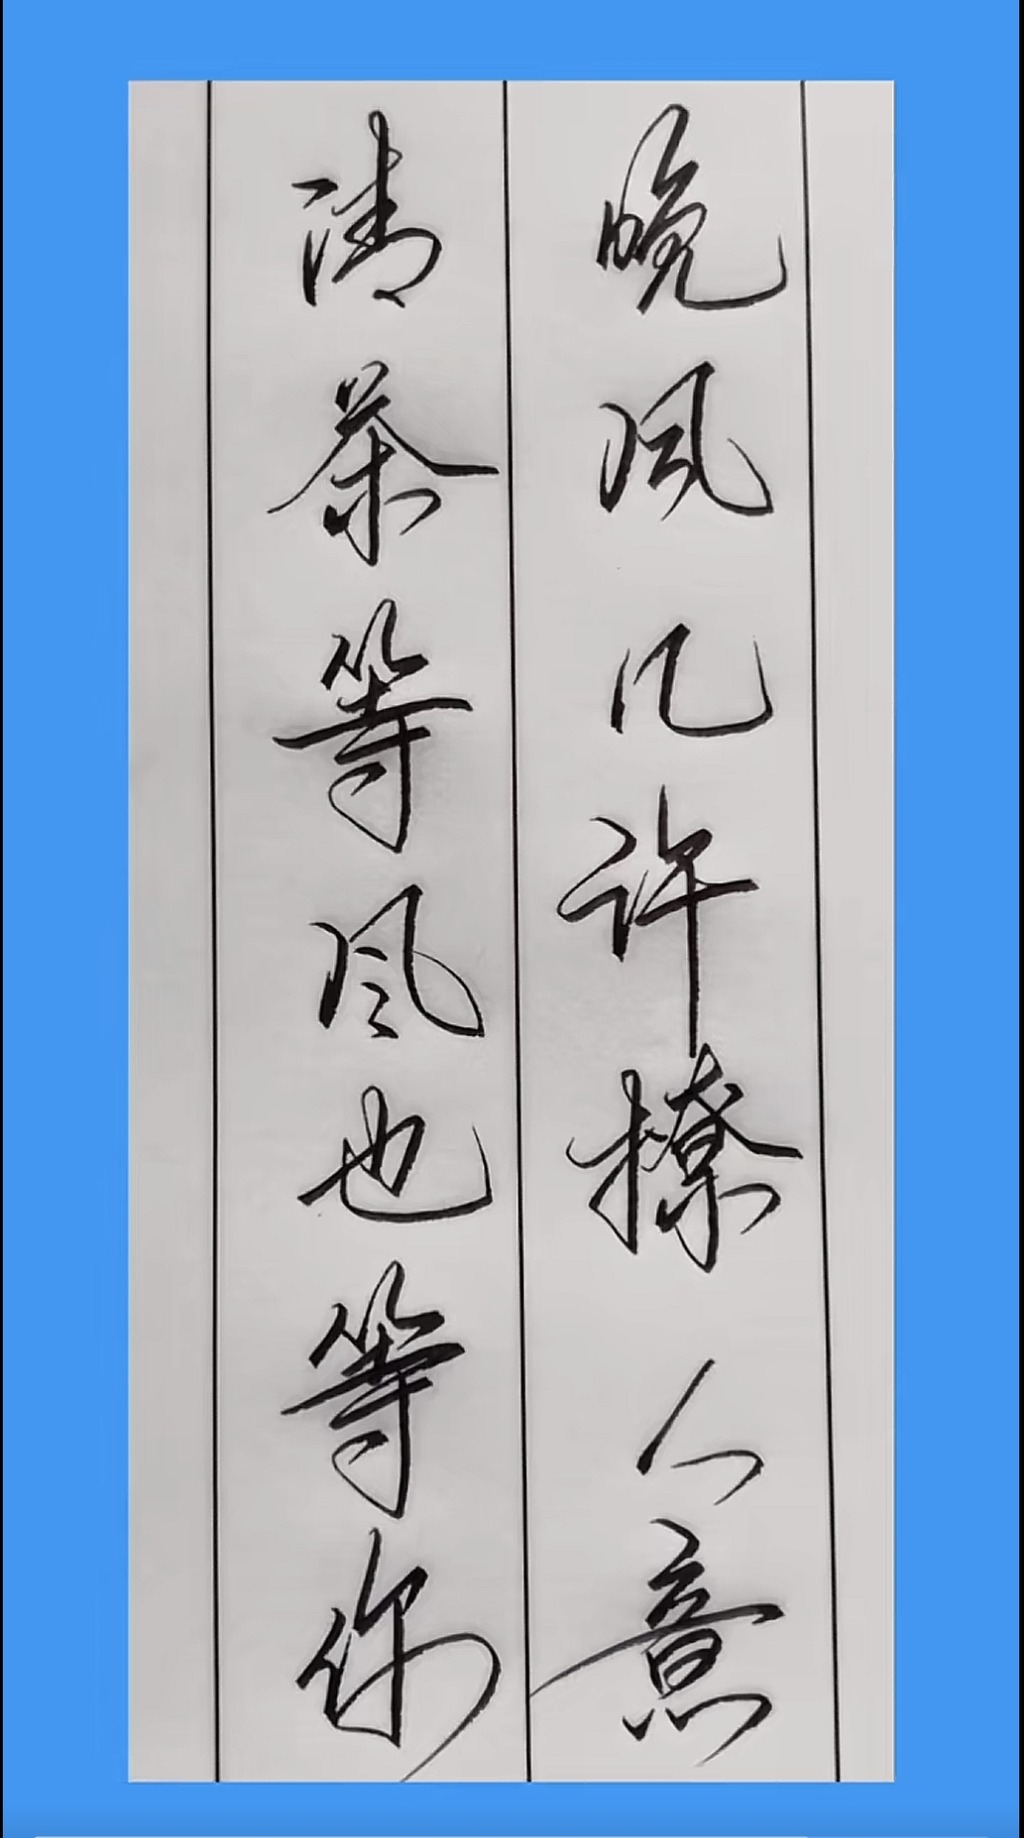 晚风几许撩人意
清茶等风也等你